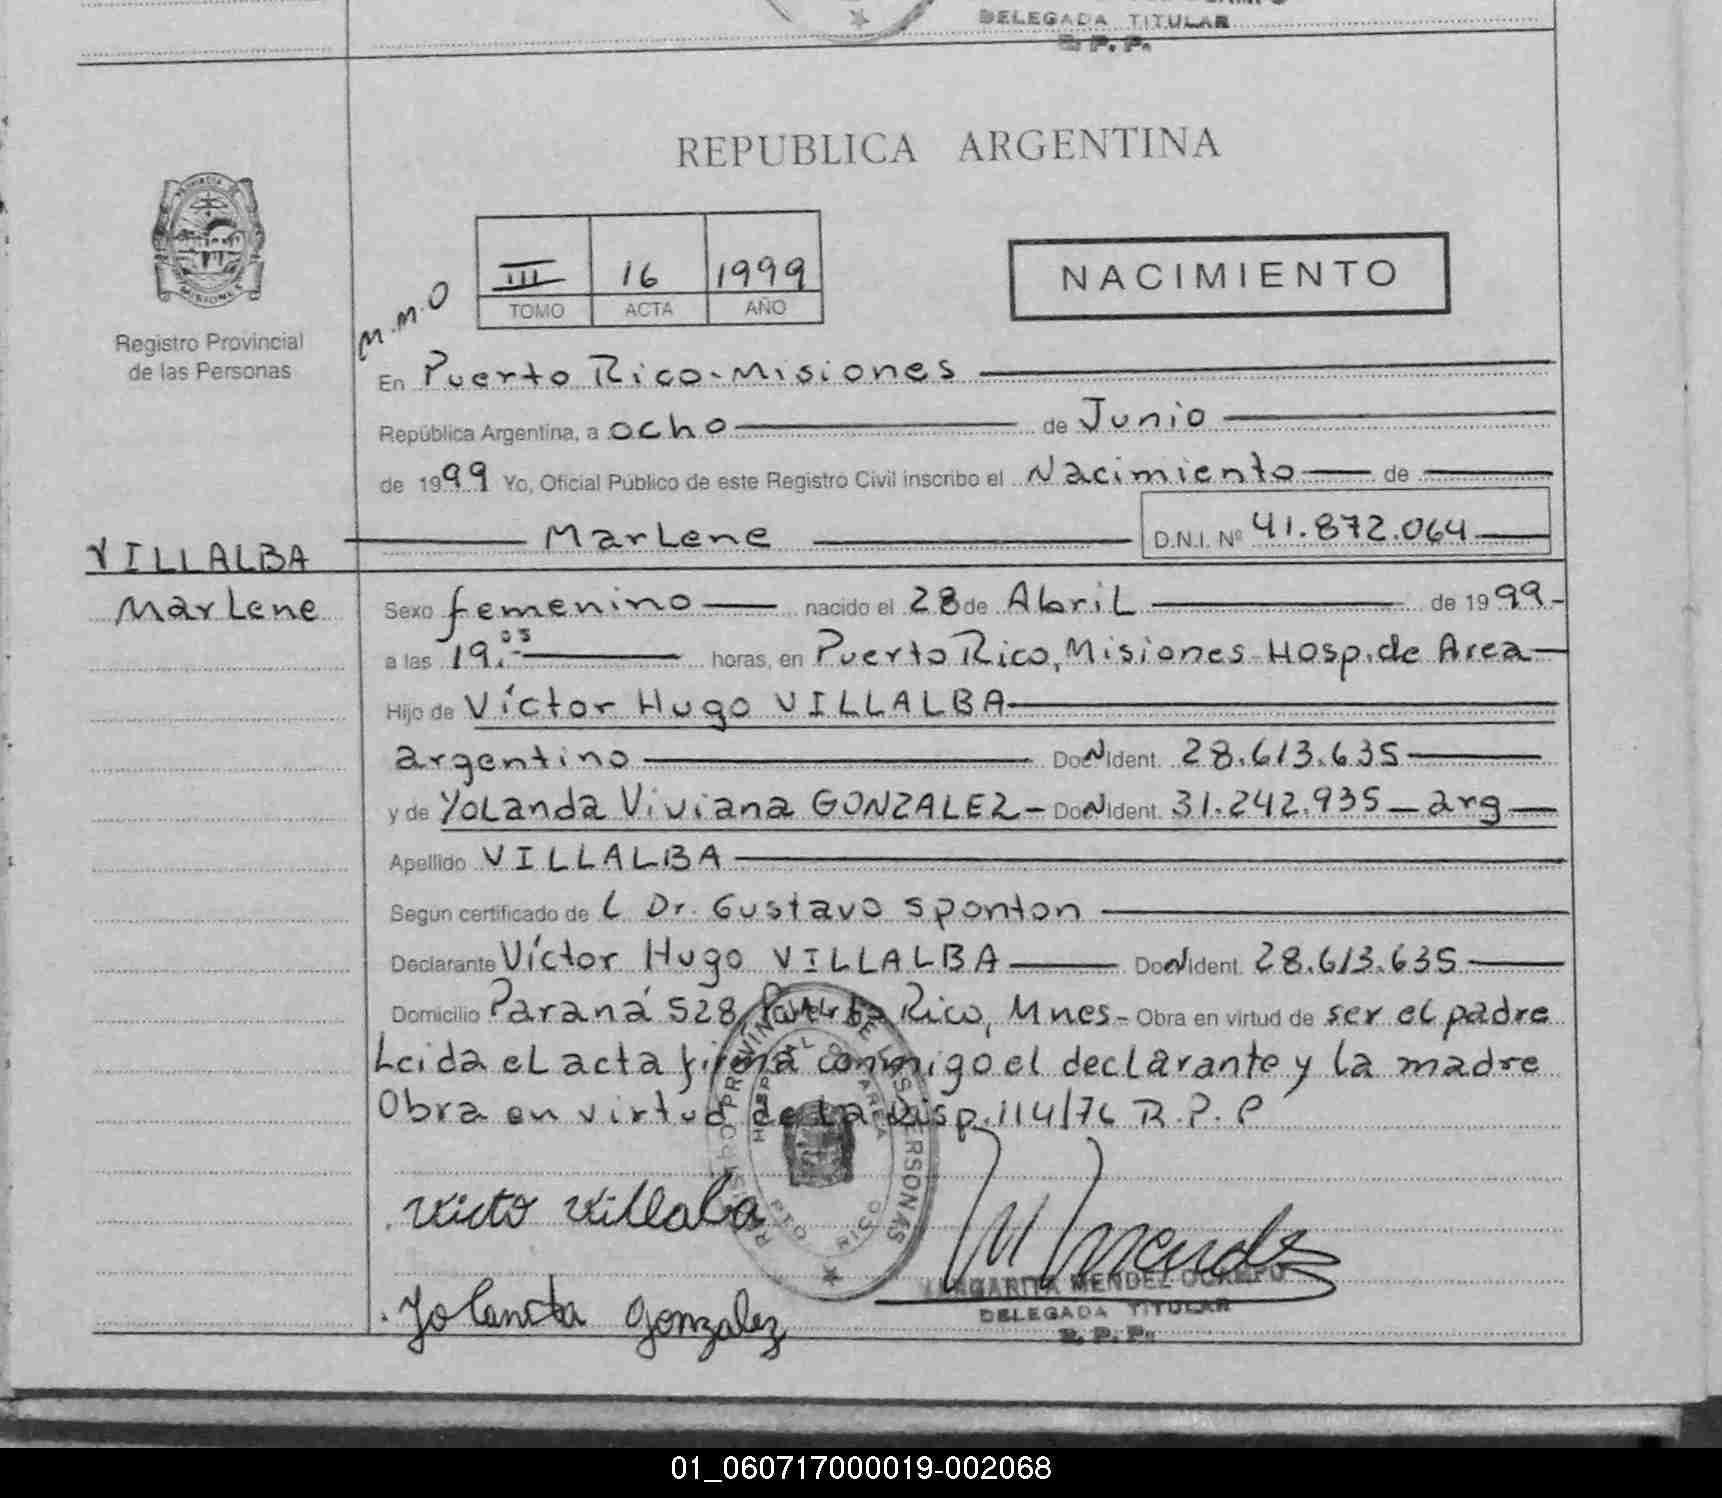 DELEGADA TITULAR
R. P. P.
REPUBLICA ARGENTINA
PROVINCIA DE
MISIONES
Registro Provincial
de las Personas
III 16 1999
TOMO ACTA AÑO
NACIMIENTO
M.M.O
En Puerto Rico-Misiones
República Argentina, a ocho de Junio
de 1999 Yo, Oficial Público de este Registro Civil inscribo el Nacimiento de
Marlene D.N.I. Nº 41.872.064
VILLALBA
Marlene
Sexo femenino nacido el 28 de Abril de 1999-
a las 19.05 horas, en Puerto Rico, Misiones-Hosp.de Area
Hijo de Víctor Hugo VILLALBA
argentino DocNIdent. 28.613.635
y de Yolanda Viviana GONZALEZ- DocNIdent. 31.242.935 - arg
Apellido VILLALBA
Según certificado de L Dr. Gustavo Sponton
Declarante Víctor Hugo VILLALBA DocNIdent. 28.613.635
Domicilio Paraná 528, Puerto Rico, Mnes- Obra en virtud de ser el padre
Leida el acta firma conmigo el declarante y la madre
Obra en virtud de la Disp.114/76 R.P.P
REGISTRO PROVINCIAL DE LAS PERSONAS
HOSPITAL DE AREA
PTO RICO
Victo Villaba
M Mendez
MARGARITA MENDEZ OCAMPO
DELEGADA TITULAR
R. P. P.
Yolanda Gonzalez
01_060717000019-002068